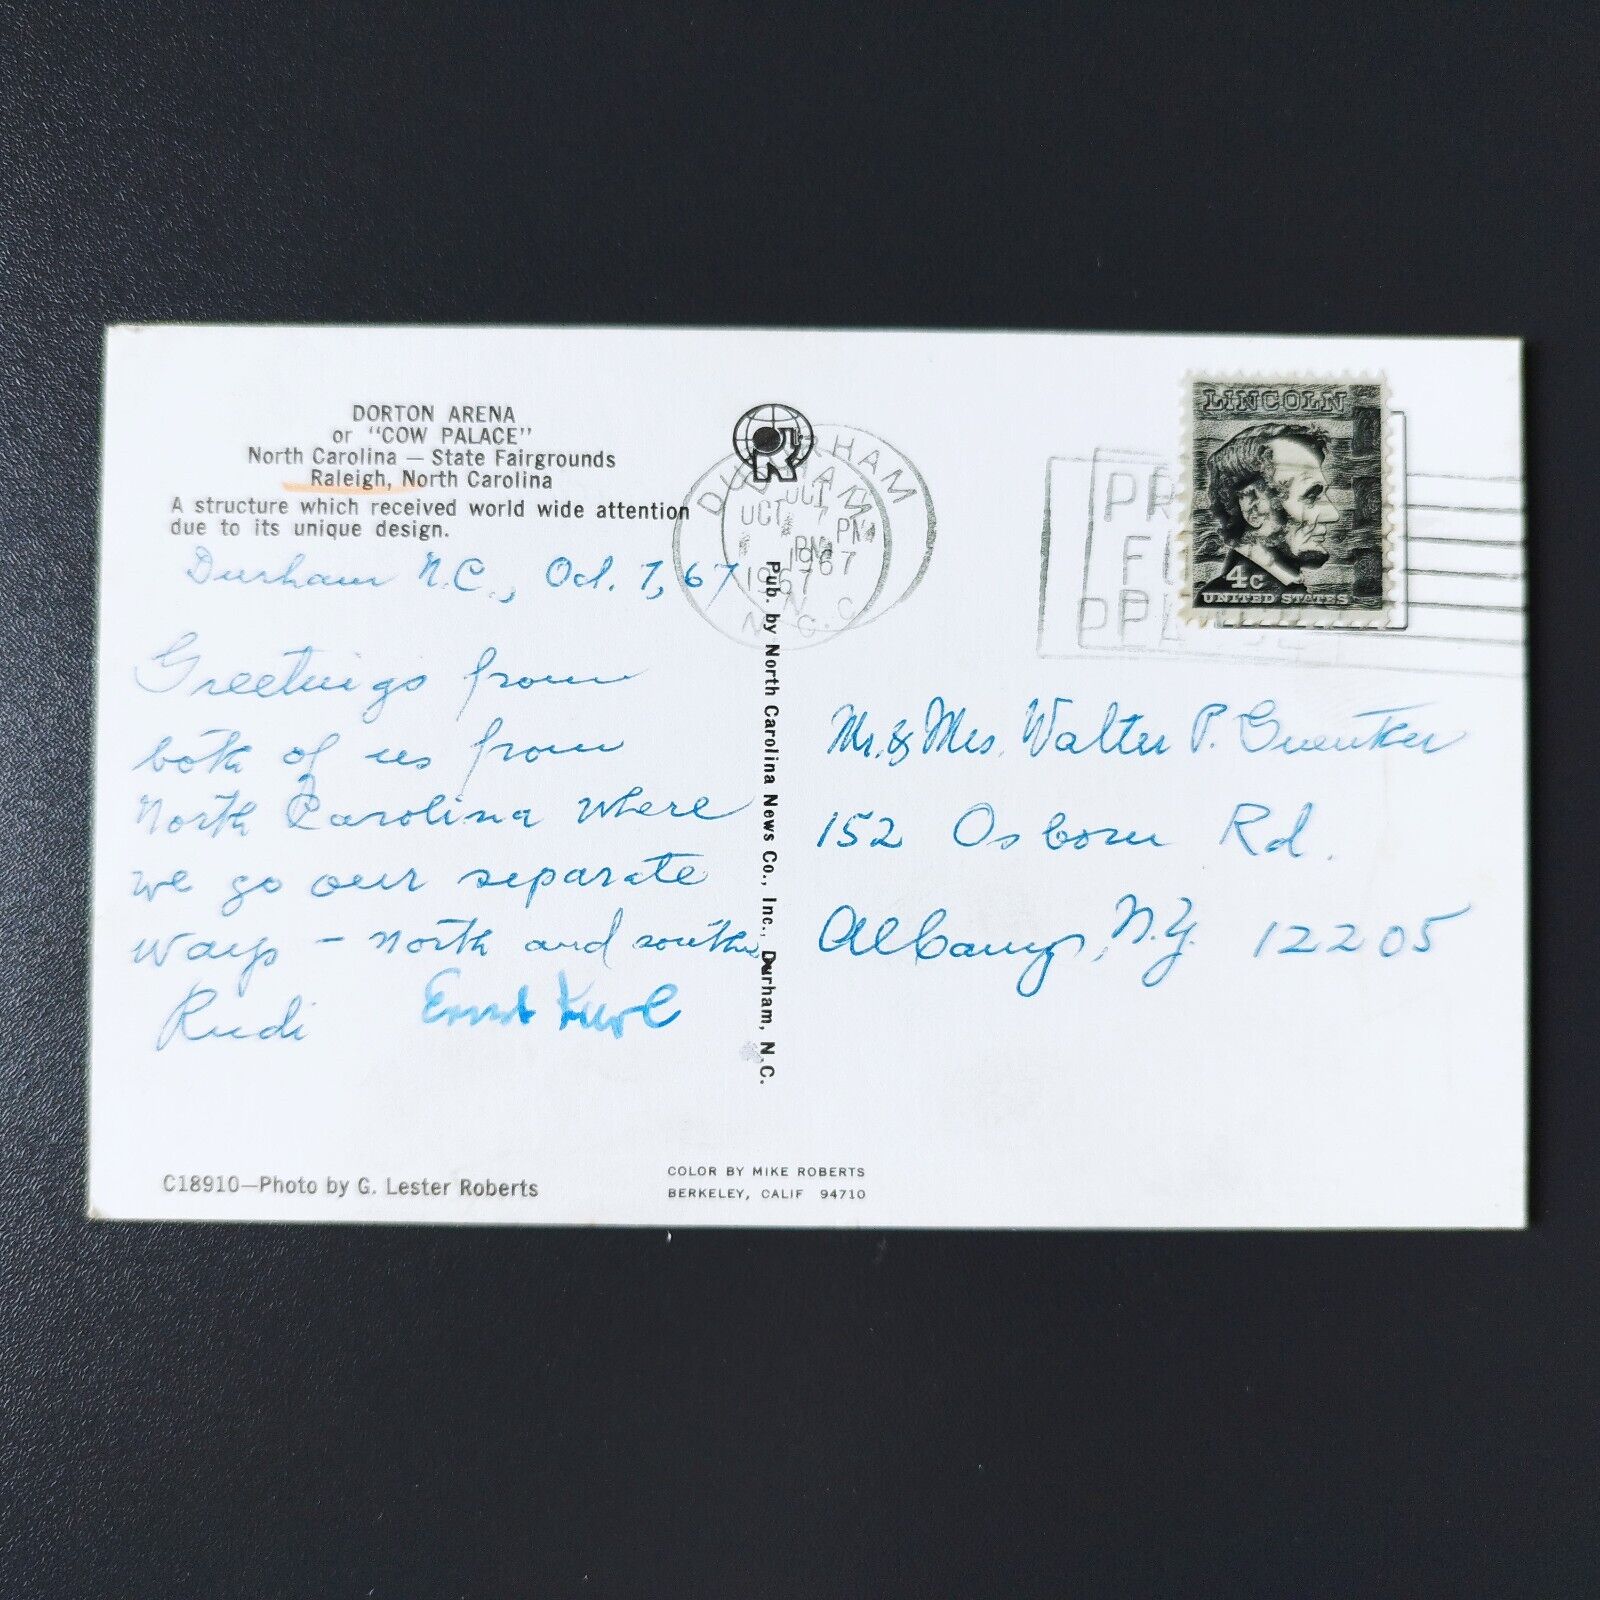 DORTON ARENA
or "COW PALACE"
North Carolina — State Fairgrounds
Raleigh, North Carolina
A structure which received world wide attention
due to its unique design.
Durham N.C., Oct. 7, 67
Greetings from
both of us from
North Carolina where
we go our separate
ways - north and south
Rudi Ernst
C18910—Photo by G. Lester Roberts
Pub. by North Carolina News Co., Inc., Durham, N.C.
COLOR BY MIKE ROBERTS
BERKELEY, CALIF 94710
DURHAM
OCT 7
PM
1967
N.C.
LINCOLN
4c
UNITED STATES
Mr. & Mrs. Walter P. Guenther
152 Osborn Rd.
Albany, N.Y. 12205